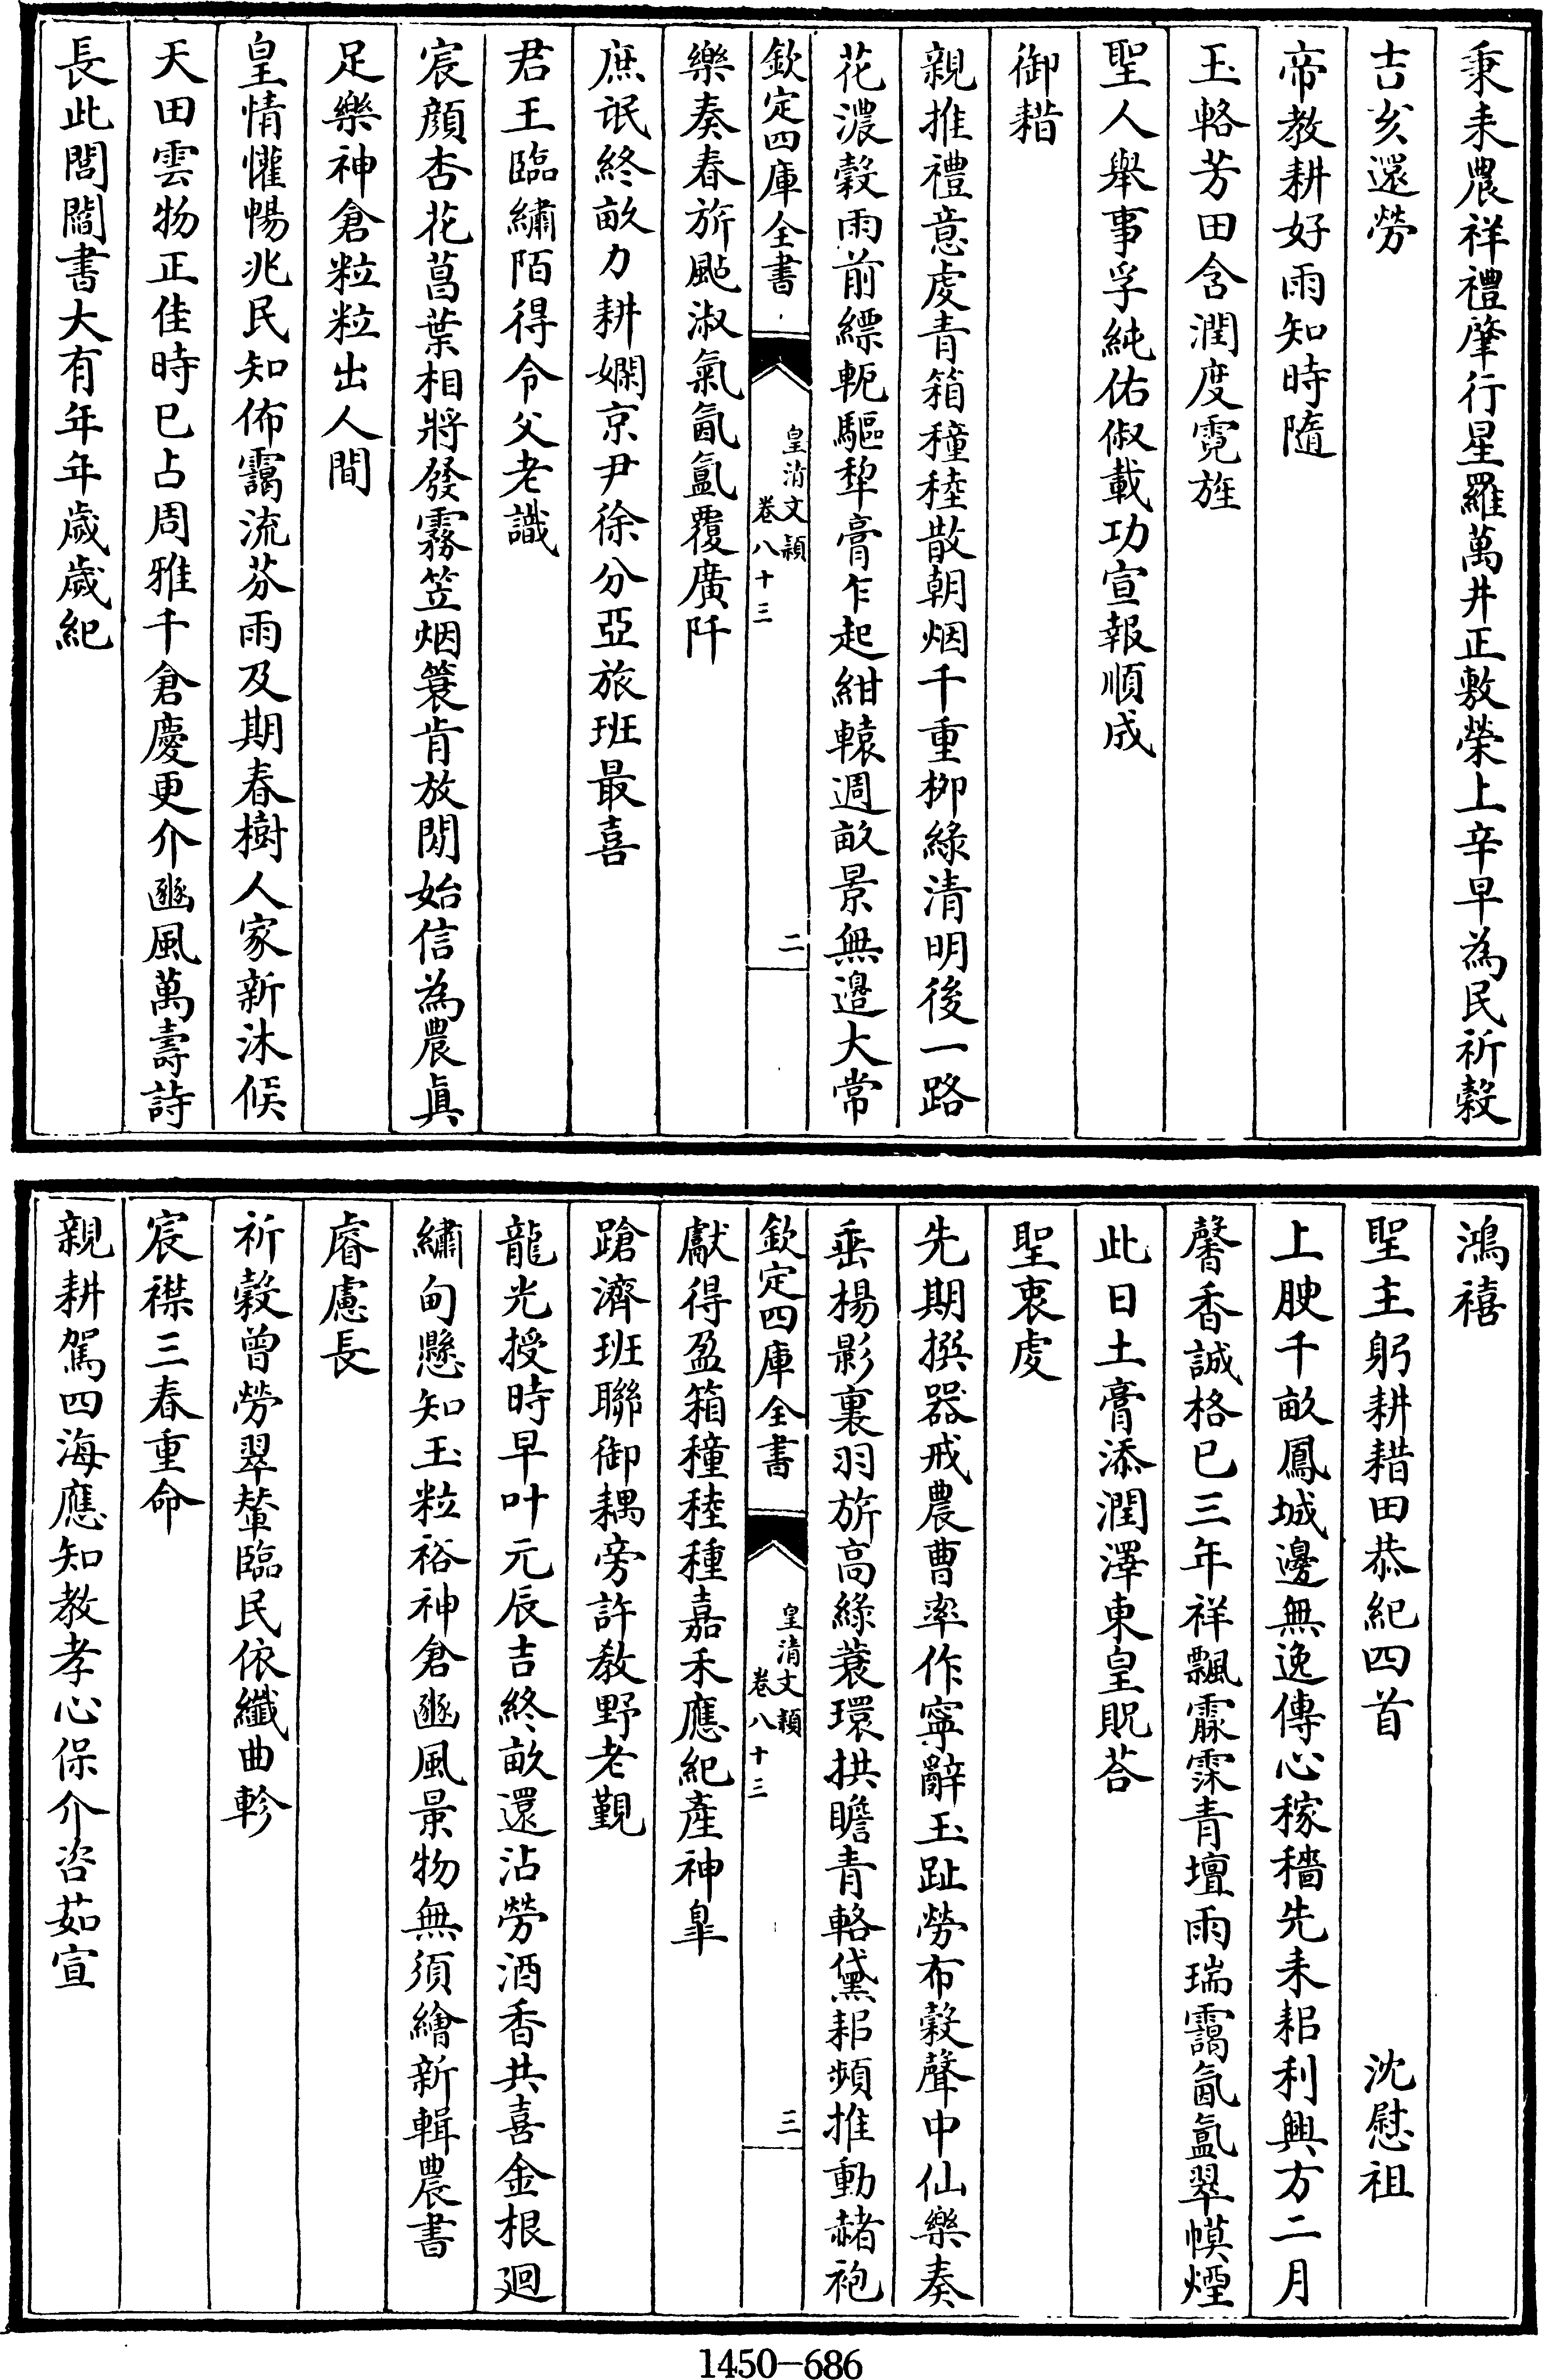 秉耒農祥禮肇行星羅萬井正敷榮上辛早為民祈穀
吉亥還勞
帝教耕好雨知時隨
玉輅芳田含潤度霓旌
聖人舉事孚純佑俶載功宣報順成
御耤
親推禮意虔青箱穜稑散朝烟千重柳綠清明後一路
花濃穀雨前縹軛驅犂膏乍起紺轅週畝景無邉大常
欽定四庫全書
皇清文穎
卷八十三
二
樂奏春旂颭淑氣氤氲覆廣阡
庶氓終畝力耕嫻京尹徐分亞旅班最喜
君王臨繡陌得令父老識
宸顔杏花菖葉相將發霧笠烟簑肯放閒始信為農真
足樂神倉粒粒出人間
皇情懽暢兆民知佈靄流芬雨及期春樹人家新沐候
天田雲物正佳時已占周雅千倉慶更介豳風萬壽詩
長此閭閻書大有年年歲歲紀
鴻禧
聖主躬耕耤田恭紀四首
沈慰祖
上腴千畝鳳城邊無逸傳心稼穡先耒耜利興方二月
馨香誠格已三年祥飄霢霂青壇雨瑞靄氤氲翠幙煙
此日土膏添潤澤東皇貺荅
聖衷虔
先期撰器戒農曹率作寧辭玉趾勞布穀聲中仙樂奏
垂楊影裏羽旂高綠蓑環拱瞻青輅黛耜頻推動赭袍
欽定四庫全書
皇清文穎
卷八十三
三
獻得盈箱穜稑種嘉禾應紀產神臯
蹌濟班聯御耦旁許教野老覲
龍光授時早叶元辰吉終畝還沾勞酒香共喜金根廻
繡甸懸知玉粒裕神倉豳風景物無須繪新輯農書
睿慮長
祈穀曾勞翠輦臨民依纖曲軫
宸襟三春重命
親耕駕四海應知教孝心保介咨茹宣
1450-686